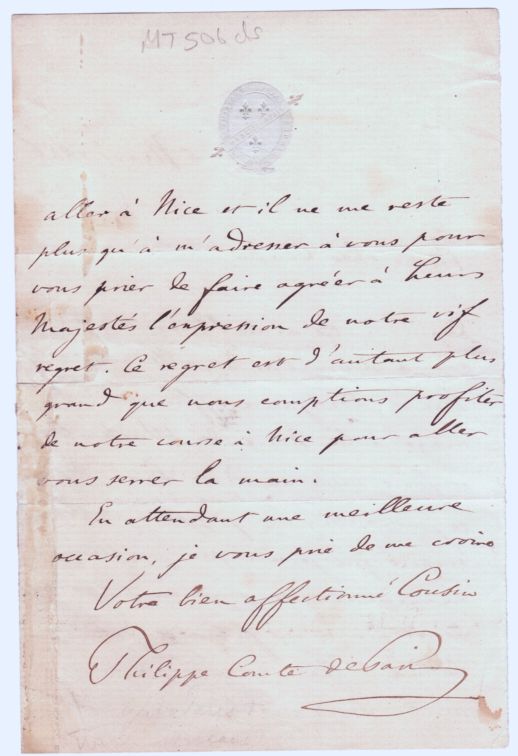 MT 506 ds
aller à Nice et il ne me reste
plus qu'à m'adresser à vous pour
vous prier de faire agréer à Leurs
Majestés l'expression de notre vif
regret. Ce regret est d'autant plus
grand que nous comptions profiter
de notre course à Nice pour aller
vous serrer la main.
En attendant une meilleure
occasion, je vous prie de me croire
Votre bien affectionné Cousin
Philippe Comte de Paris